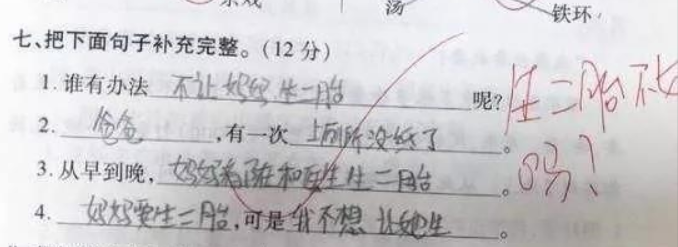 荡
铁环
七、把下面句子补充完整。(12分)
1.谁有办法 不让妈妈生二胎 呢?
2. 爸爸 ,有一次 上厕所没纸了 。
3.从早到晚, 妈妈都在和医生生二胎 。
4. 妈妈要生二胎 ,可是 我不想让她生 。
生二胎不好
吗?